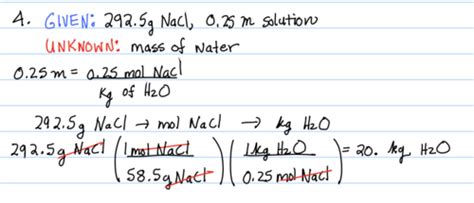 4. GIVEN: 292.5g NaCl, 0.25 m solution
UNKNOWN: mass of water
0.25 m = 0.25 mol NaCl / kg of H2O
292.5g NaCl → mol NaCl → kg H2O
292.5g NaCl (1 mol NaCl / 58.5g NaCl) (1 kg H2O / 0.25 mol NaCl) = 20. kg H2O